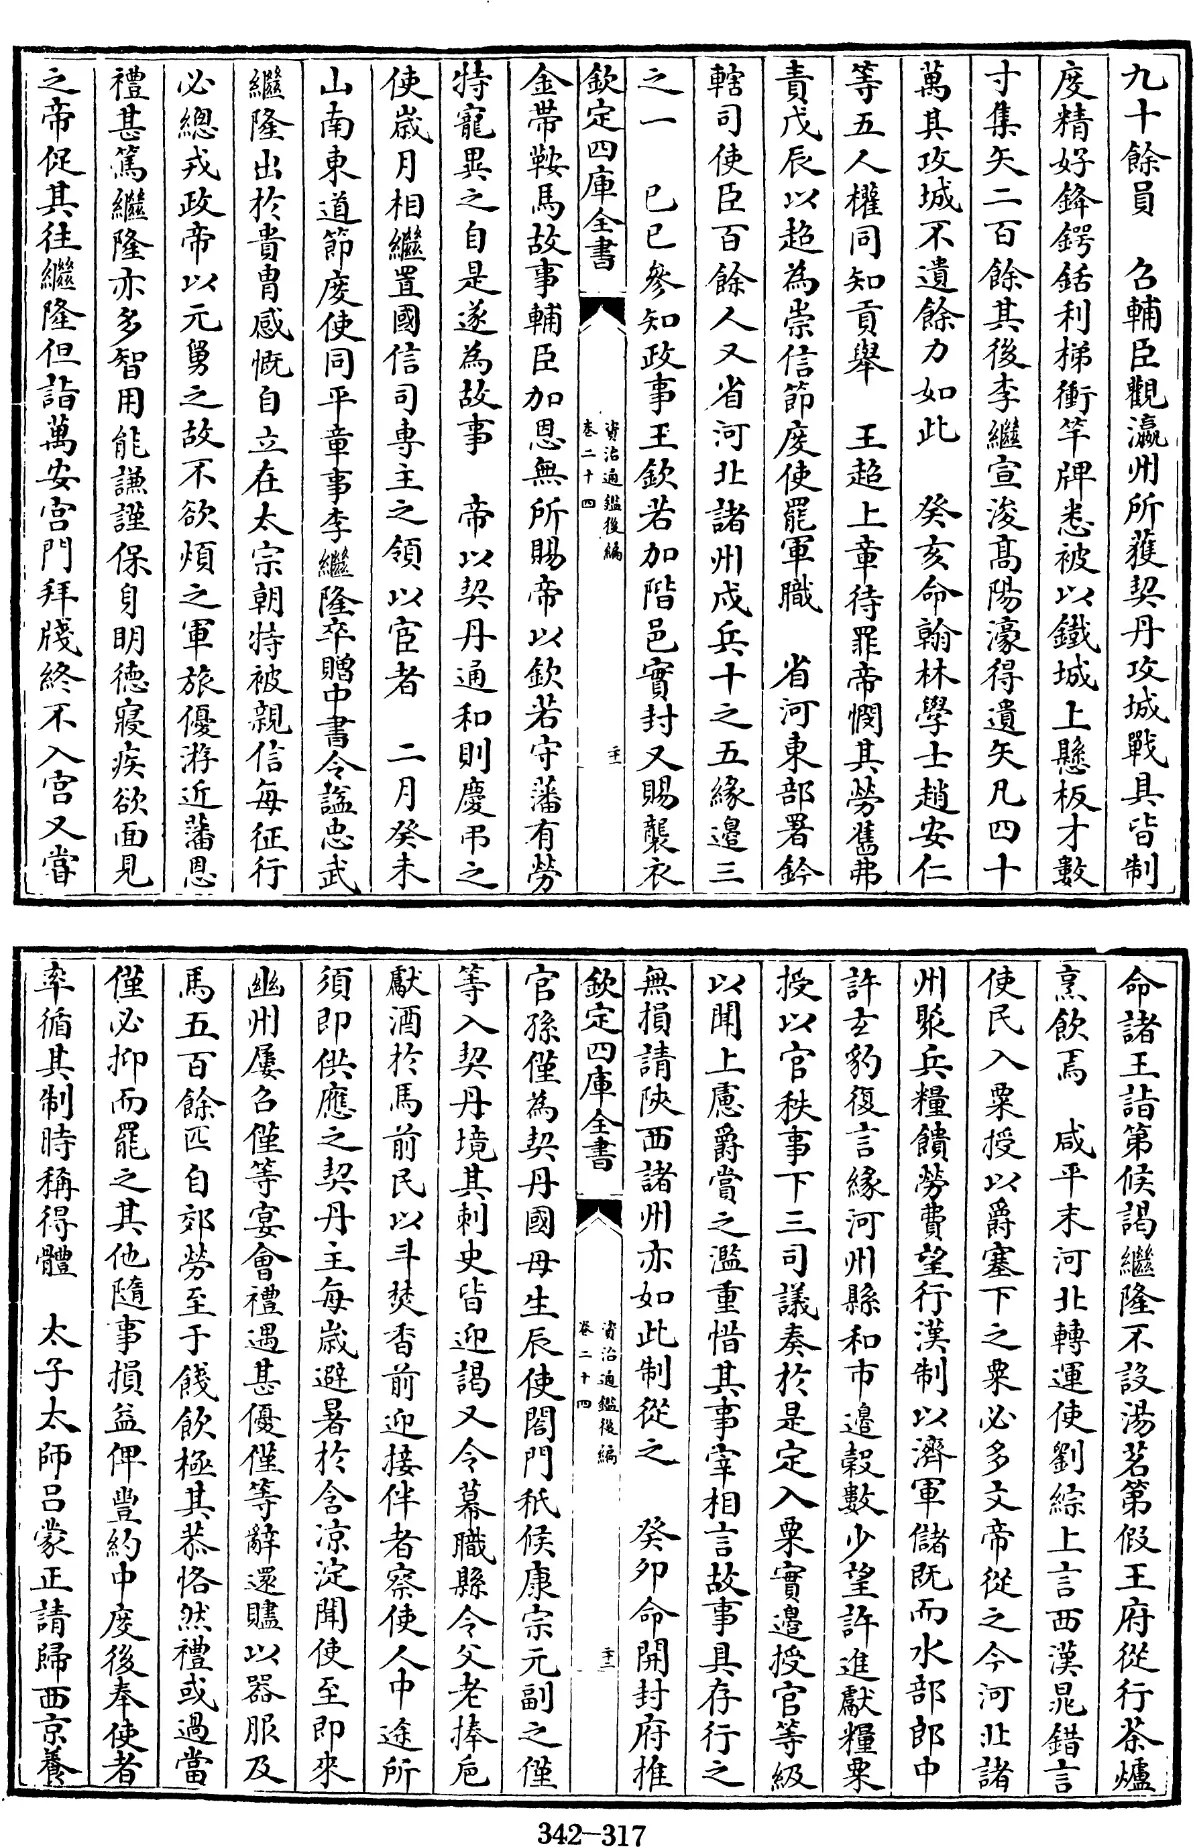 九十餘員　召輔臣觀瀛州所獲契丹攻城戰具皆制
度精好鋒鍔銛利梯衝竿牌悉被以鐵城上懸板才數
寸集矢二百餘其後李繼宣浚高陽濠得遺矢凡四十
萬其攻城不遺餘力如此　癸亥命翰林學士趙安仁
等五人權同知貢舉　王超上章待罪帝憫其勞舊弗
責戊辰以超為崇信節度使罷軍職　省河東部署鈐
轄司使臣百餘人又省河北諸州戍兵十之五緣邉三
之一　己巳參知政事王欽若加階邑實封又賜襲衣
欽定四庫全書　資治通鑑後編卷二十四　二十一
金帯鞍馬故事輔臣加恩無所賜帝以欽若守藩有勞
特寵異之自是遂為故事　帝以契丹通和則慶弔之
使歲月相繼置國信司専主之領以宦者　二月癸未
山南東道節度使同平章事李繼隆卒贈中書令諡忠武
繼隆出於貴冑感慨自立在太宗朝特被親信每征行
必總戎政帝以元舅之故不欲煩之軍旅優游近藩恩
禮甚篤繼隆亦多智用能謙謹保身明德寢疾欲面見
之帝促其往繼隆但詣萬安宫門拜牋終不入宫又嘗
命諸王詣第候謁繼隆不設湯茗第假王府從行茶爐
烹飲焉　咸平末河北轉運使劉綜上言西漢鼂錯言
使民入粟授以爵塞下之粟必多文帝從之今河北諸
州聚兵糧饋勞費望行漢制以濟軍儲既而水部郎中
許玄豹復言緣河州縣和市邉穀數少望許進獻糧粟
授以官秩事下三司議奏於是定入粟實邉授官等級
以聞上慮爵賞之濫重惜其事宰相言故事具存行之
無損請陝西諸州亦如此制從之　癸卯命開封府推
欽定四庫全書　資治通鑑後編卷二十四　二十二
官孫僅為契丹國母生辰使閤門祗候康宗元副之僅
等入契丹境其刺史皆迎謁又令幕職縣令父老捧卮
獻酒於馬前民以斗焚香前迎接伴者察使人中途所
須即供應之契丹主每歲避暑於含凉淀聞使至即來
幽州屢召僅等宴會禮遇甚優僅等辭還贐以器服及
馬五百餘匹自郊勞至于餞飲極其恭恪然禮或過當
僅必抑而罷之其他隨事損益俾豐約中度後奉使者
率循其制時稱得體　太子太師吕蒙正請歸西京養
342—317